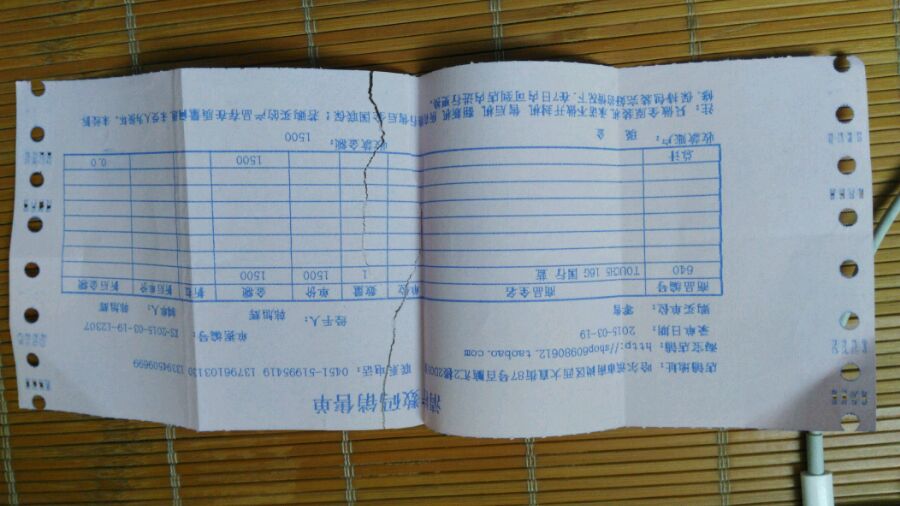 数码销售单
店铺地址： 哈尔滨市南岗区西大直街87号百脑汇2楼2D01 联系电话：0451-51995419 13796103130 13394509699
淘宝店铺： http://shop60980612.taobao.com
录单日期： 2015-03-19 单据编号： XS-2015-03-19-12307
购买单位： 零售 经手人： 韩旭辉 制单人： 韩旭辉
商品编号 商品全名 单位 数量 单价 金额 折扣 折后单价 折后金额
640 TOUCH5 16G 国行 蓝 1 1500 1500
总计 1500 0.0
收款账户： 现 金 收款金额： 1500
注： 只做全原装机，承诺不做开封机，售后机，翻新机 售后全国联保；若购买的产品存在质量问题 未使人为拆机，未经拆
修，保持包装完好的情况下，在7日内可到店内进行更换。